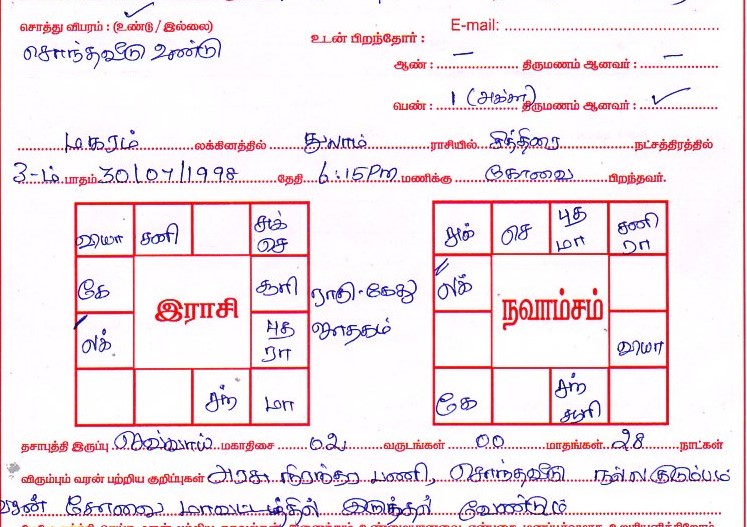 E-mail:
சொத்து விபரம் : (உண்டு / இல்லை)
உடன் பிறந்தோர் :
சொந்தவீடு உண்டு
ஆண் : — திருமணம் ஆனவர் : —
பெண் : 1 (அக்கா) திருமணம் ஆனவர் : ✓
மகரம் லக்கினத்தில் துலாம் ராசியில் சித்திரை நட்சத்திரத்தில்
3-ம் பாதம் 30/07/1998 தேதி 6:15PM மணிக்கு கோவை பிறந்தவர்.
வியா சனி சுக் செ
கே சூரி
இராசி
லக் புத ரா
சந் மா
ராகு-கேது
ஜாதகம்
சுக் செ புத மா சனி ரா
லக்
நவாம்சம்
வியா
கே சந் சூரி
தசாபுத்தி இருப்பு செவ்வாய் மகாதிசை 02 வருடங்கள் 00 மாதங்கள் 28 நாட்கள்
விரும்பும் வரன் பற்றிய குறிப்புகள் அரசு நிரந்தர பணி, சொந்தவீடு நல்ல குடும்பம்
வரன் கோவை மாவட்டத்தில் இருத்தல் வேண்டும்